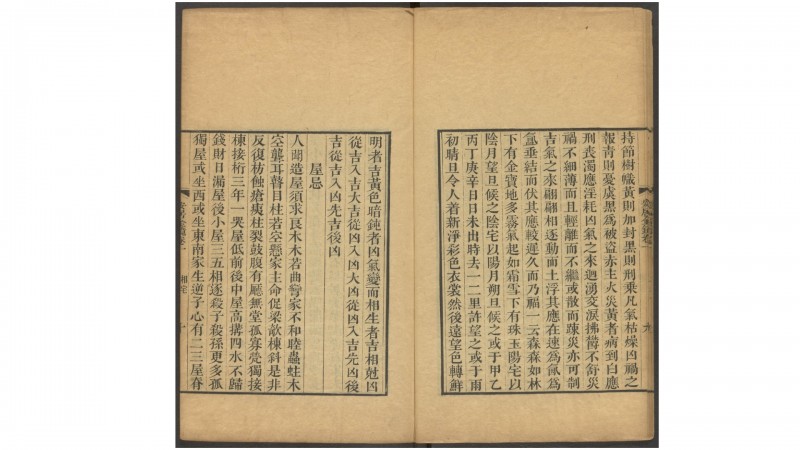 持節樹幟黃則加封黑則刑乗凡氣枯燥凶禍之
報靑則憂虞黑爲被盜赤主火災黃者病到白應
刑丧濁應淫耗凶氣之來廻湧交淚拂鬱不舒災
禍不細薄而且輕離而不繼或散而踈災亦可制
吉氣之來翩翩相逐動而上浮其應在速爲氤爲
氳垂結而伏其應較遲久而乃福一云森森如林
下有金寶地多霧氣起如霜雪下有珠玉陽宅以
陰月望旦候之陰宅以陽月朔旦候之或于甲乙
丙丁庚辛日日未出時去一二里許望之或于雨
初晴旦令人着新淨彩色衣裳然後遠望色轉鮮
明者吉黃色暗鈍者凶氣變而相生者吉相尅凶
從吉入吉大吉從凶入凶大凶從凶入吉先凶後
吉從吉入凶先吉後凶
屋忌
人間造屋須求良木木若曲彎家不和睦蟲蛀木
空聾耳瞽目柱若空懸家主命促梁欹棟斜是非
反復枋蝕瘡痍柱裂鼓腹有廳無堂孤寡煢獨接
棟接桁三年一哭屋低前後中屋高搆四水不歸
錢財日漏屋後小屋三五相逐殺子殺孫更多孤
獨屋或坐西或坐東南家生逆子心有二三屋脊